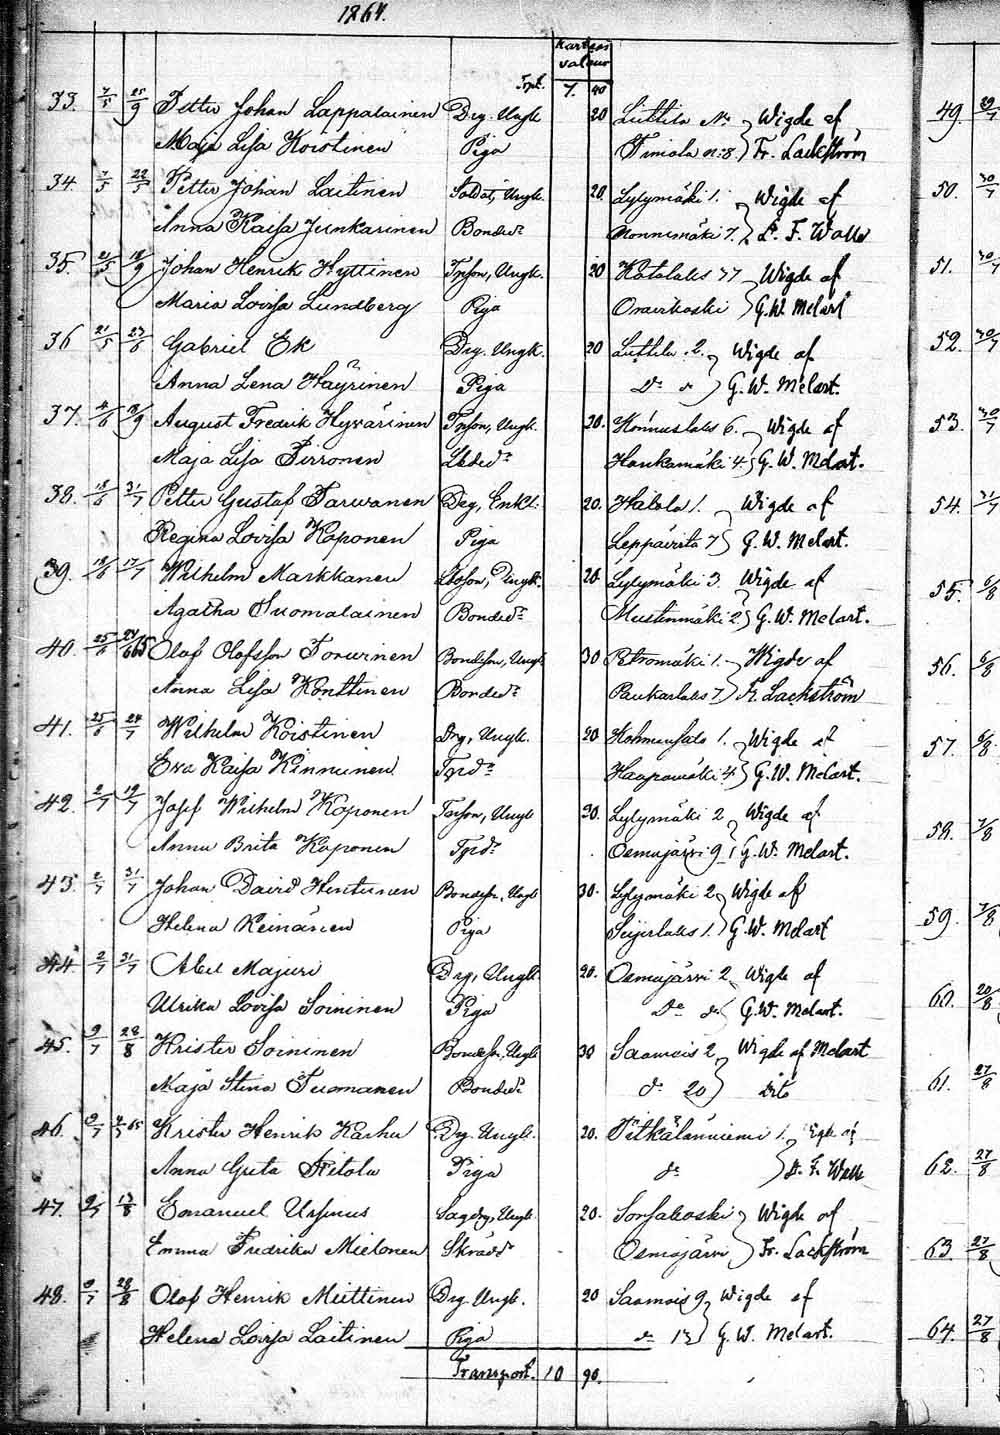 1864.
Kartens
valuur
Trpt. 7. 90
33. 7/5 25/9 Petter Johan Lappalainen Drg. Ungk. 20 Luttila No Wigde af
Maja Lisa Koistinen Piga Timola n:8 Fr. Lackström
34. 7/5 22/5 Petter Johan Laitinen Soldat, Ungk. 20. Lylymäki 1. Wigde af
Anna Kaisa Junkarinen Bondedr Nonnimäki 7. F. Walle
35. 21/5 18/9 Johan Henrik Hyttinen Tpson, Ungk. 20 Kotalaks 77 Wigde af
Maria Lovisa Lundberg Piga Oravikoski G.W. Melart
36 21/5 23/6 Gabriel Ek Drg. Ungk. 20 Luttila 2. Wigde af
Anna Lena Häyrinen Piga Do G. W. Melart.
37. /6 18/9 August Fredrik Hyvärinen Tpson, Ungk. 20. Konnuslaks 6. Wigde af
Maja Lisa Pirronen Haukamäki 4. G. W. Melart.
38. 18/6 31/7 Petter Gustaf Tarvanen Drg, Enkl. 20. Hatola 1. Wigde af
Regina Lovisa Koponen Piga Leppävirta 7 G. W. Melart.
39. 18/6 17/7 Wilhelm Markkanen Ungk. 20. Lylymäki 3. Wigde af
Agatha Suomalainen Bondedr Mustinmäki 2 G. W. Melart.
40. 25/6 65 Olof Olofsson Toruinen Bondeson, Ungk. 30 Petromäki 1. Wigde af
Anna Lisa Konttinen Bondedr Paukarlaks 7 Fr. Lackström
41. 25/6 24/7 Wilhelm Koistinen Drg, Ungk. 20 1. Wigde af
Eva Kaisa Kinnunen Tprdr 4. G. W. Melart.
42. 2/7 17/7 Josef Wilhelm Koponen Tpson, Ungk 20. Lylymäki 2 Wigde af
Anna Brita Koponen Tprdr Osmajärvi 9 G. W. Melart.
43. 2/7 31/7 Johan David Hintunen Bondeson, Ungk 30. Lylymäki 2 Wigde af
Helena Reinänen Piga 1. G. W. Melart
44 2/7 31/7 Abel Majuri Drg, Ungk 20. Osmajärvi 2 Wigde af
Ulrika Lovisa Soininen Piga Do do G. W. Melart.
45. 9/7 28/8 Krister Soininen Bondeson, Ungk 30 Saamois 2 Wigde af Melart
Maja Stina Tuomanen Bondedr do 20 Dito
46. 9/7 65 Krister Henrik Karhu Drg. Ungk. 20. Pitkälänniemi 1. Wigde af
Anna Greta Ritola Piga do F. Walle
47. 9/7 13/8 Emanuel Ursinus Ungk. 20. Sorsakoski Wigde af
Emma Fredrika Mielonen Skrädd Osmajärvi Fr. Lackström
48. 9/7 28/8 Olof Henrik Miettinen Drg. Ungk. 20 Saamois 9 Wigde af
Helena Lovisa Laitinen Piga do 13 G. W. Melart.
Transport. 10 90.
49. 29/7
50. 30/7
51. 30/7
52. 30/7
53. 30/7
54. 31/7
55. 6/8
56. 6/8
57. 6/8
58. 7/8
59. 7/8
60. 20/8
61. 27/8
62. 27/8
63 27/8
64. 27/8